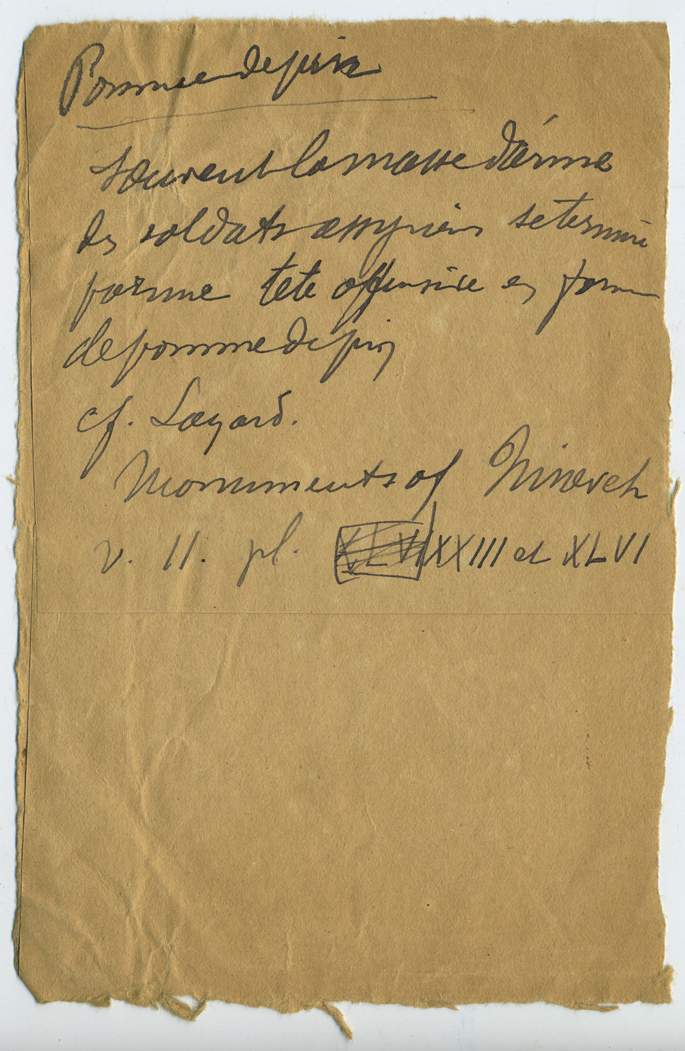 Pomme de pin
Souvent la masse d'arme
des soldats assyriens se termine
forme tete offensive en forme
de pomme de pin
cf. Layard.
Monuments of Nineveh
v. II. pl. XXIII et XLVI